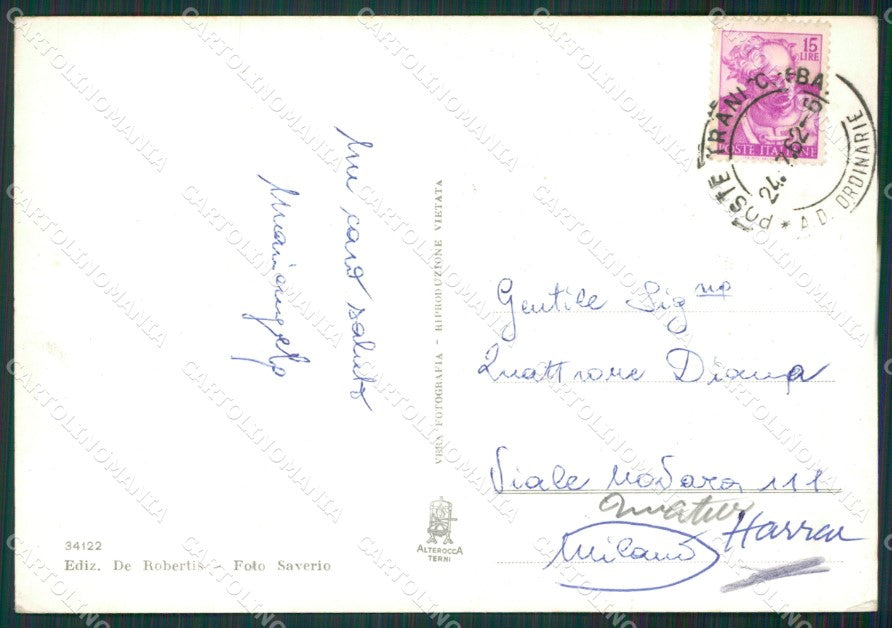 Un caro saluto
Mariangela
VERA FOTOGRAFIA - RIPRODUZIONE VIETATA
34122
Ediz. De Robertis - Foto Saverio
ALTEROCCA
TERNI
15
LIRE
POSTE ITALIANE
POSTE TRANI C. BA.
24.
62-
* A D. ORDINARIE
Gentile Sig na
Quattrone Diana
Viale 111
Milano
CARTOLINOMANIA